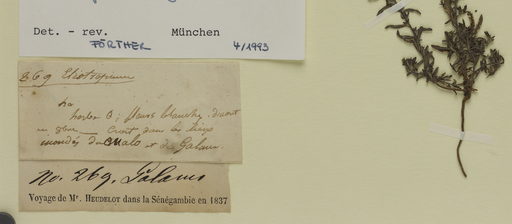 Det. - rev. München
FÖRTHER 4/1993
269 Heliotropium
herbe ; fleurs blanches. durant
Croît dans les lieux
inondés du Oualo et de Galam.
No. 269. Galam
Voyage de Mr. HEUDELOT dans la Sénégambie en 1837